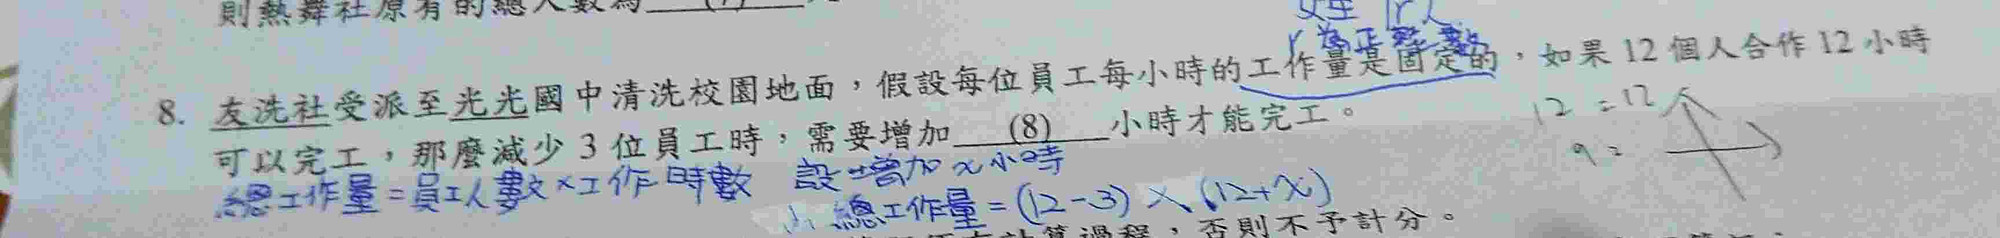 則熱舞社原有的總人數為 (7)
為正整數
8. 友洗社受派至光光國中清洗校園地面，假設每位員工每小時的工作量是固定的，如果 12 個人合作 12 小時
12 = 12
可以完工，那麼減少 3 位員工時，需要增加 (8) 小時才能完工。
9 =
總工作量 = 員工人數 × 工作時數 設增加 x 小時
總工作量 = (12-3) × (12+x)
計算過程，否則不予計分。